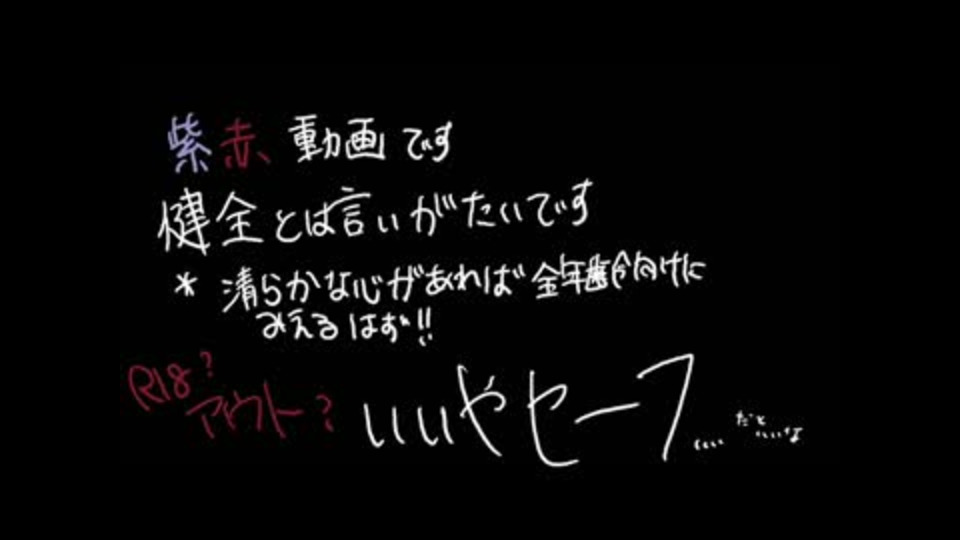 紫赤動画です
健全とは言いがたいです
* 清らかな心があれば全年齢向けに
みえるはず!!
R18?
アウト? いいやセーフ…… だと
いいな